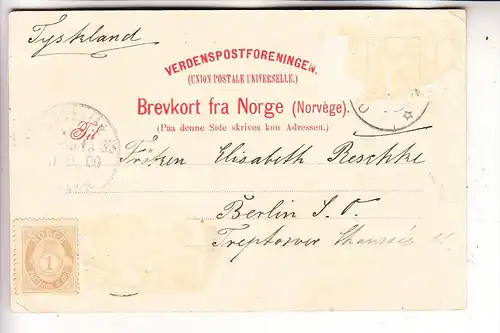 Tyskland
VERDENSPOSTFORENINGEN.
(UNION POSTALE UNIVERSELLE.)
Brevkort fra Norge (Norvège).
(Paa denne Side skrives kun Adressen.)
Til
Fröken Elisabeth Reschke
Berlin S. O.
Treptower Chaussée
NORGE
1